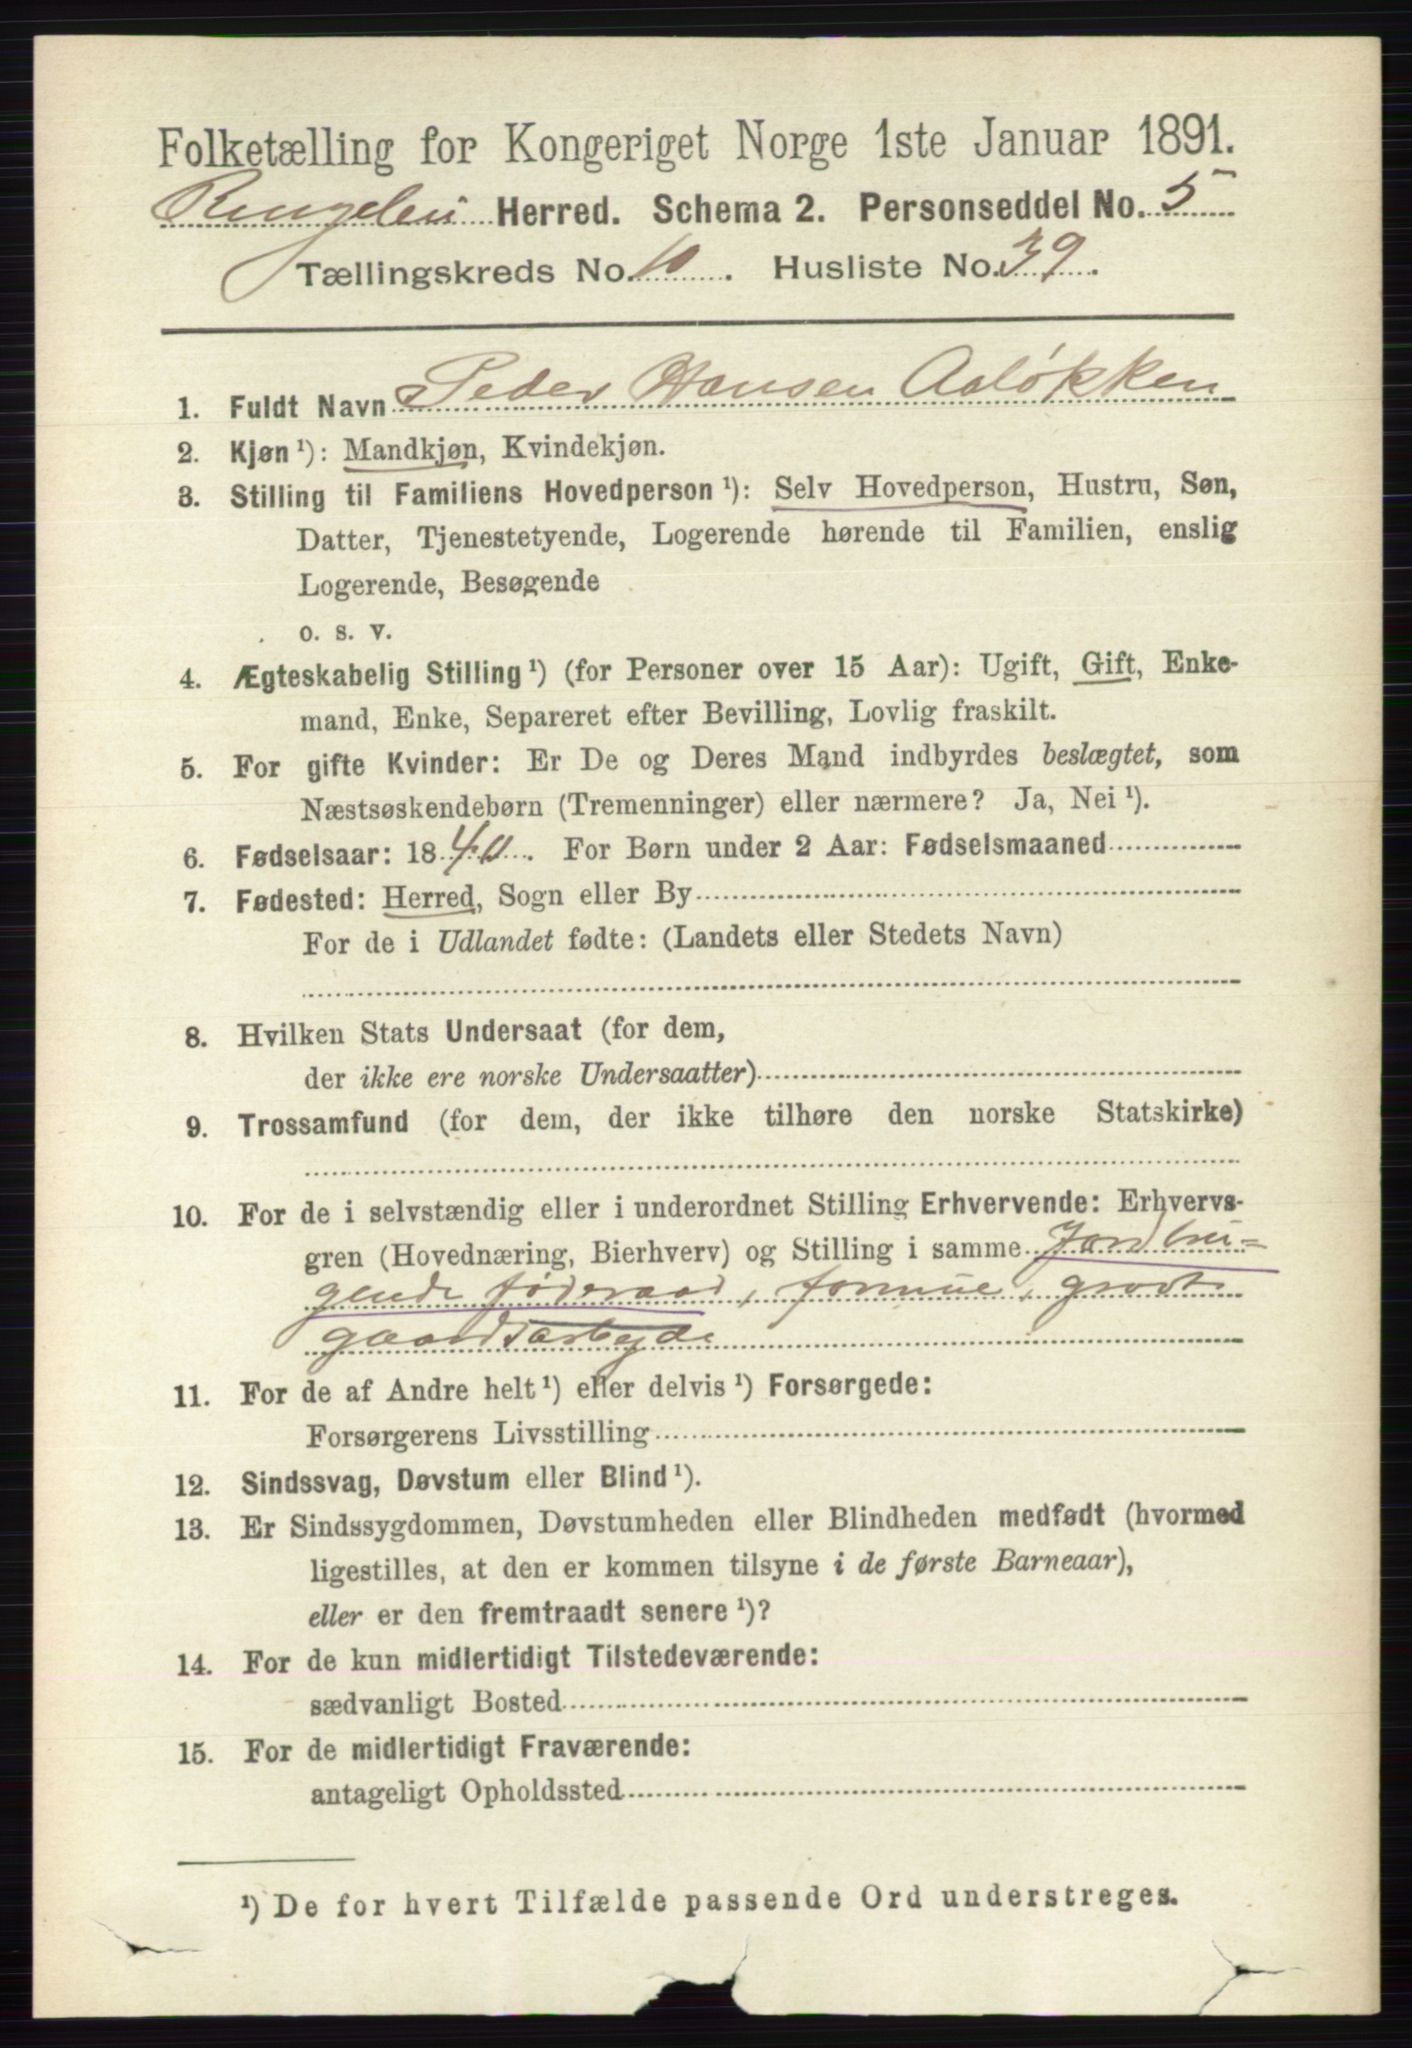 Folketælling for Kongeriget Norge 1ste Januar 1891.
Ringebu Herred. Schema 2. Personseddel No. 5
Tællingskreds No. 10. Husliste No. 39.
1. Fuldt Navn Peder Hansen Aaløkken
2. Kjøn ¹): Mandkjøn, Kvindekjøn.
3. Stilling til Familiens Hovedperson ¹): Selv Hovedperson, Hustru, Søn,
Datter, Tjenestetyende, Logerende hørende til Familien, enslig
Logerende, Besøgende
o. s. v.
4. Ægteskabelig Stilling ¹) (for Personer over 15 Aar): Ugift, Gift, Enke-
mand, Enke, Separeret efter Bevilling, Lovlig fraskilt.
5. For gifte Kvinder: Er De og Deres Mand indbyrdes beslægtet, som
Næstsøskendebørn (Tremenninger) eller nærmere? Ja, Nei ¹).
6. Fødselsaar: 1840. For Børn under 2 Aar: Fødselsmaaned
7. Fødested: Herred, Sogn eller By
For de i Udlandet fødte: (Landets eller Stedets Navn)
8. Hvilken Stats Undersaat (for dem,
der ikke ere norske Undersaatter)
9. Trossamfund (for dem, der ikke tilhøre den norske Statskirke)
10. For de i selvstændig eller i underordnet Stilling Erhvervende: Erhvervs-
gren (Hovednæring, Bierhverv) og Stilling i samme Jordbru-
gende føderaad, formue,
gaardsarbejde
11. For de af Andre helt ¹) eller delvis ¹) Forsørgede:
Forsørgerens Livsstilling
12. Sindssvag, Døvstum eller Blind ¹).
13. Er Sindssygdommen, Døvstumheden eller Blindheden medfødt (hvormed
ligestilles, at den er kommen tilsyne i de første Barneaar),
eller er den fremtraadt senere ¹)?
14. For de kun midlertidigt Tilstedeværende:
sædvanligt Bosted
15. For de midlertidigt Fraværende:
antageligt Opholdssted
¹) De for hvert Tilfælde passende Ord understreges.